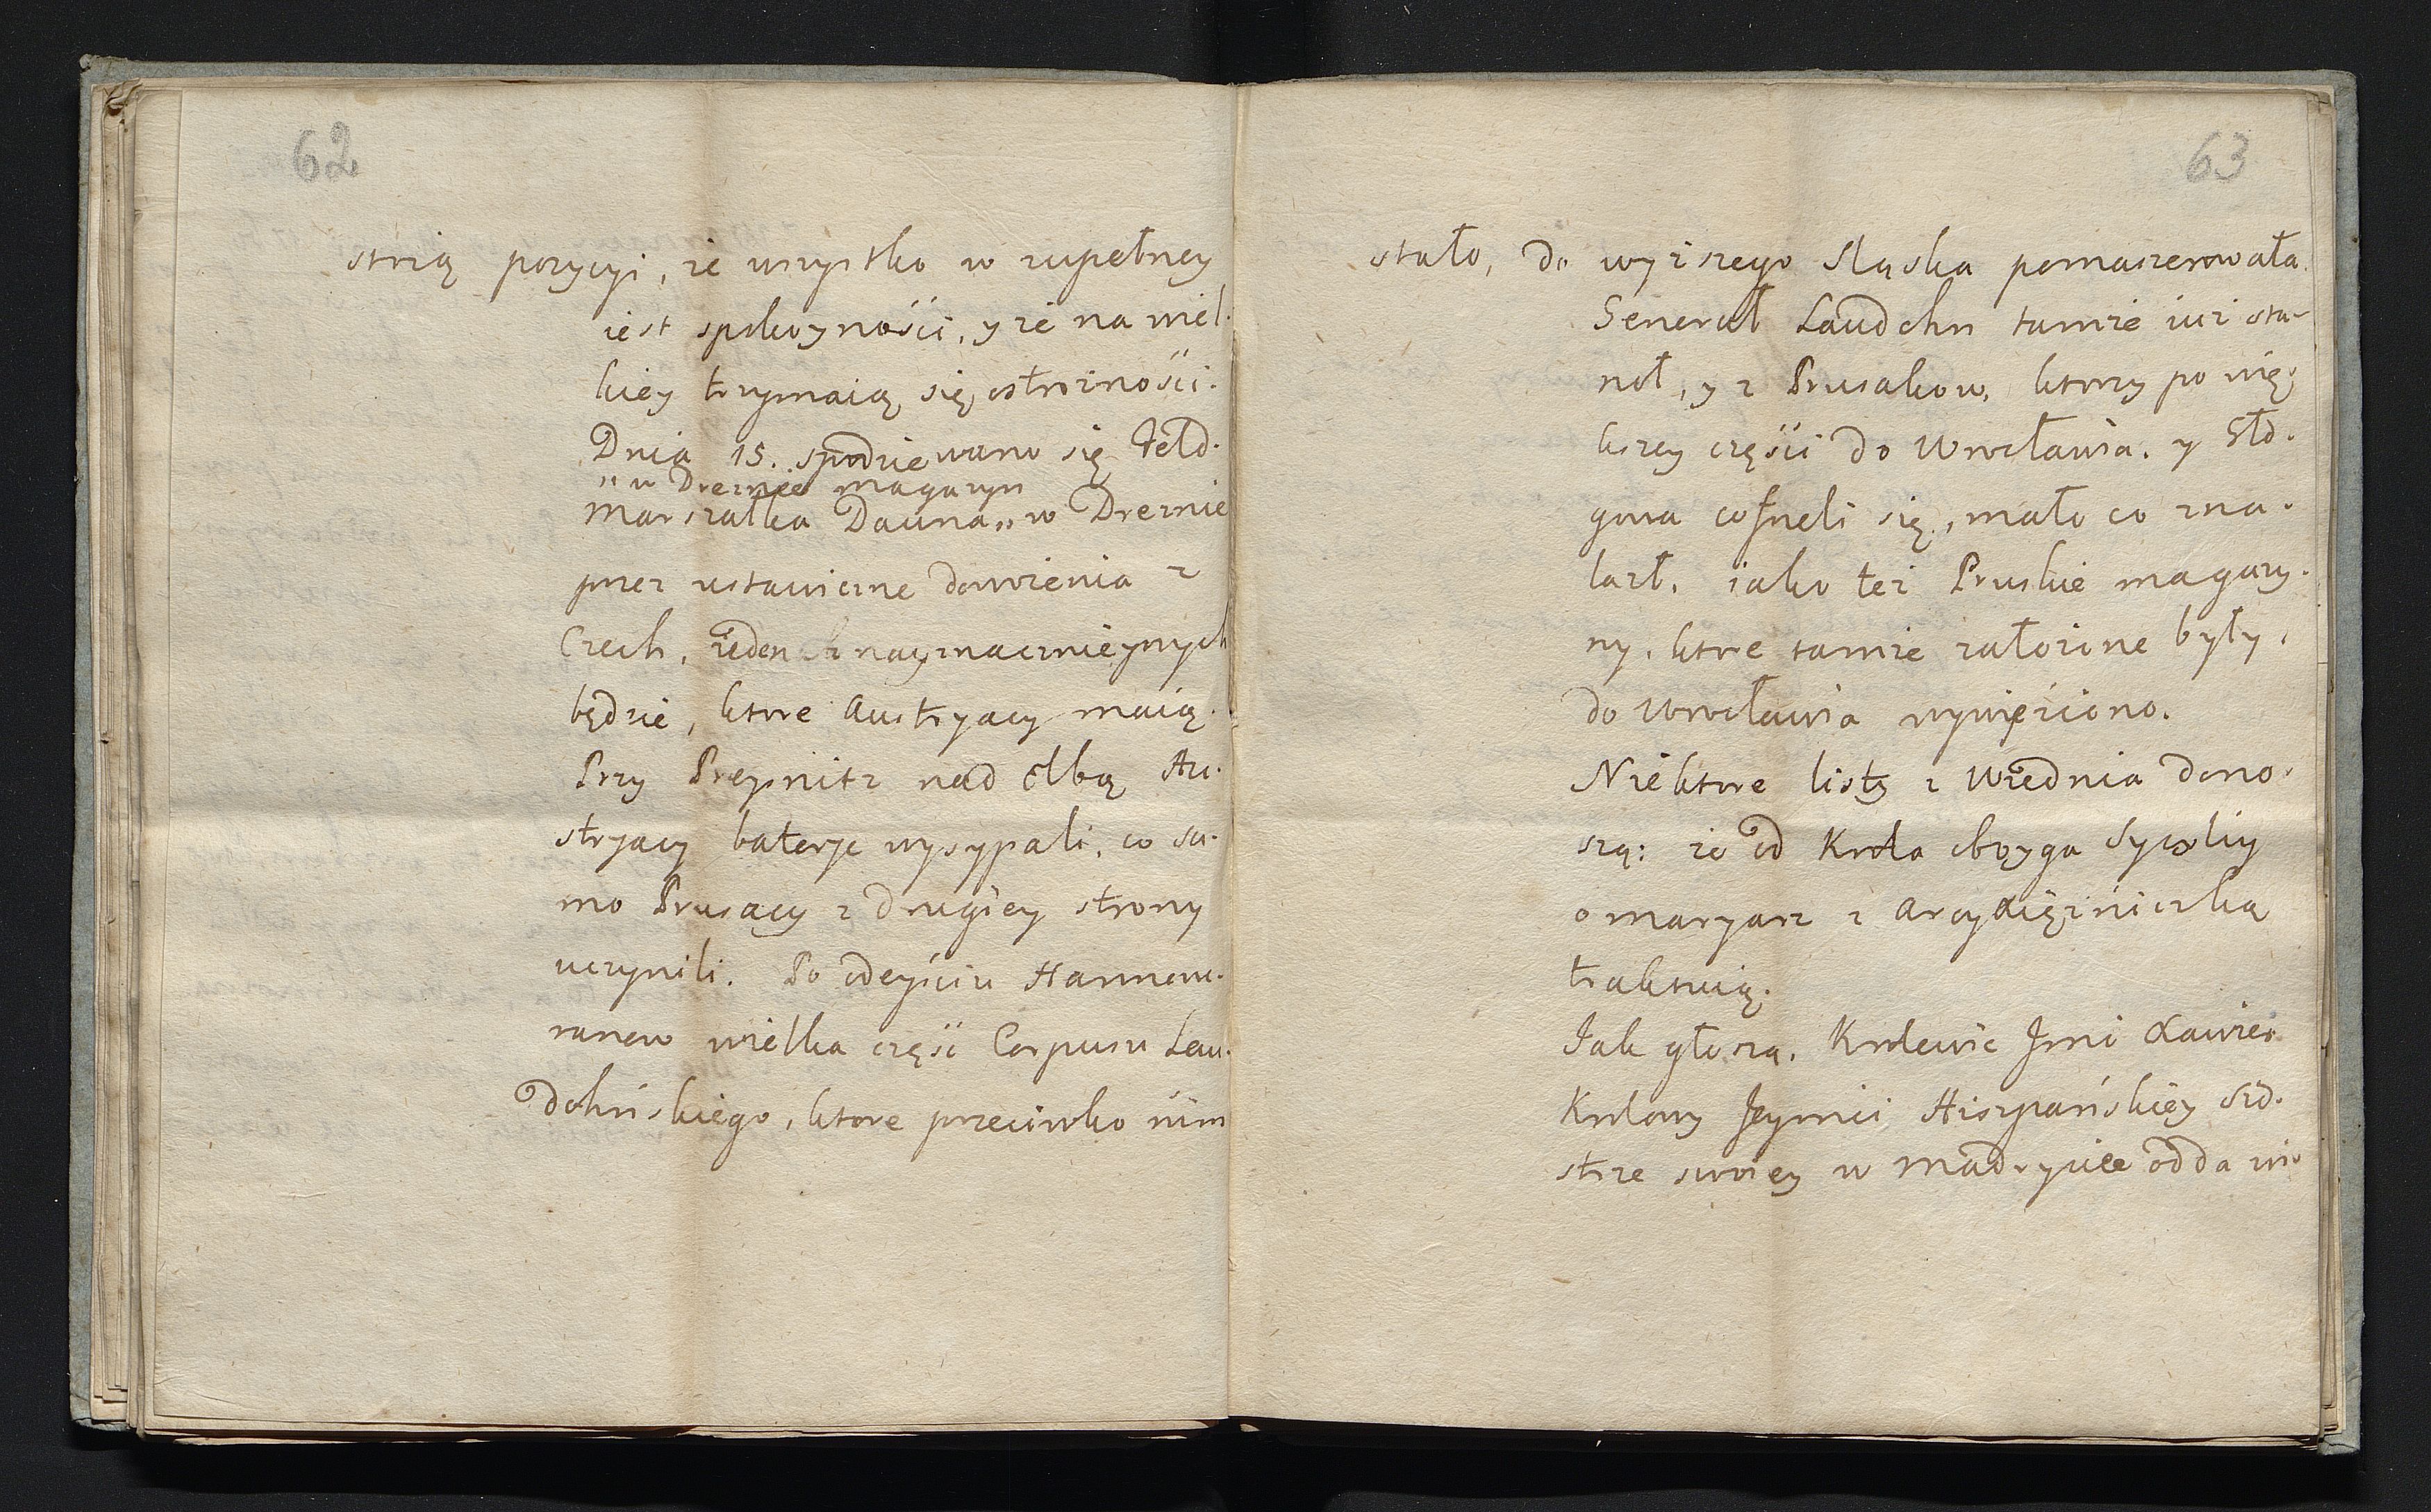 62
strią pozycyi, że wszystko w zupełney
iest spokoyności, y że na wiel-
kiey trzymaią się ostrożności.
Dnia 15. spodziewano się Feld-
„w Dreznie magazyn
marszałka Dauna„ w Dreznie
przez ustawiczne dowozienia z
Czech, ieden z nayznacznieyszych
będzie, ktore Austryacy maią.
Przy Prepnitz nad Elbą Au-
stryacy baterye wysypali, co sa-
mo Prusacy z drugiey strony
uczynili. Po odeyściu Hannow-
ranow wielka część Corpusu Lau-
dohńskiego, ktore przeciwko nim
63
stało, do wyższego Sląska pomaszerowała.
Generał Laudohn tamże iuż sta-
noł, y z Prusakow, ktorzy po wię-
kszey części do Wrocławia, y Gło-
gowa cofneli się, mało co zna-
lazł, iako też Pruskie magazy-
ny, ktore tamże założone były,
do Wrocławia wywięziono.
Niektore listy z Wiednia dono-
szą: że od Krola oboyga Sycyliy
o maryaż z Arcyxiężniczką
traktuią.
Jak głoszą, Krolewic Jmć Xawier
Krolowy Jeymci Hiszpańskiey Sio-
strze swoiey w Madrycie odda wi-